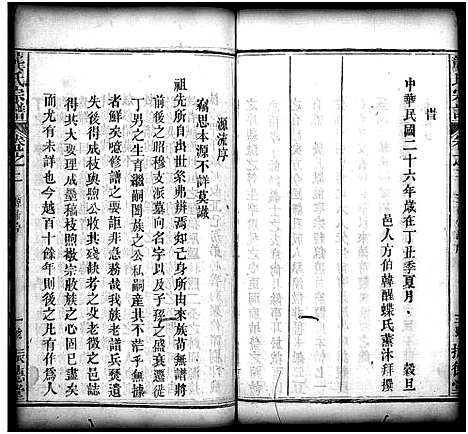 中華民國二十六年歲在丁丑季夏月 穀旦
邑人方伯韓醒蝶氏薰沐拜撰
源流序
竊思本源不詳莫識
祖先所自出世系弗辨焉知己身所由來族苗無譜則
前後之昭穆支派墓向名字以及子孫之盛衰遷徙
丁男之生育繼嗣闔族之公私嗣產其不茫乎無據
者鮮矣噫修譜之要詎非急務哉我族老譜兵燹遺
失後得成枝與煦公收其殘缺者之文老徵之邑誌
得其大要理成墨稿枝煦敬宗收族之心固已盡矣
而尤有未善者今越百十餘年則後之凡有作為人
振德堂